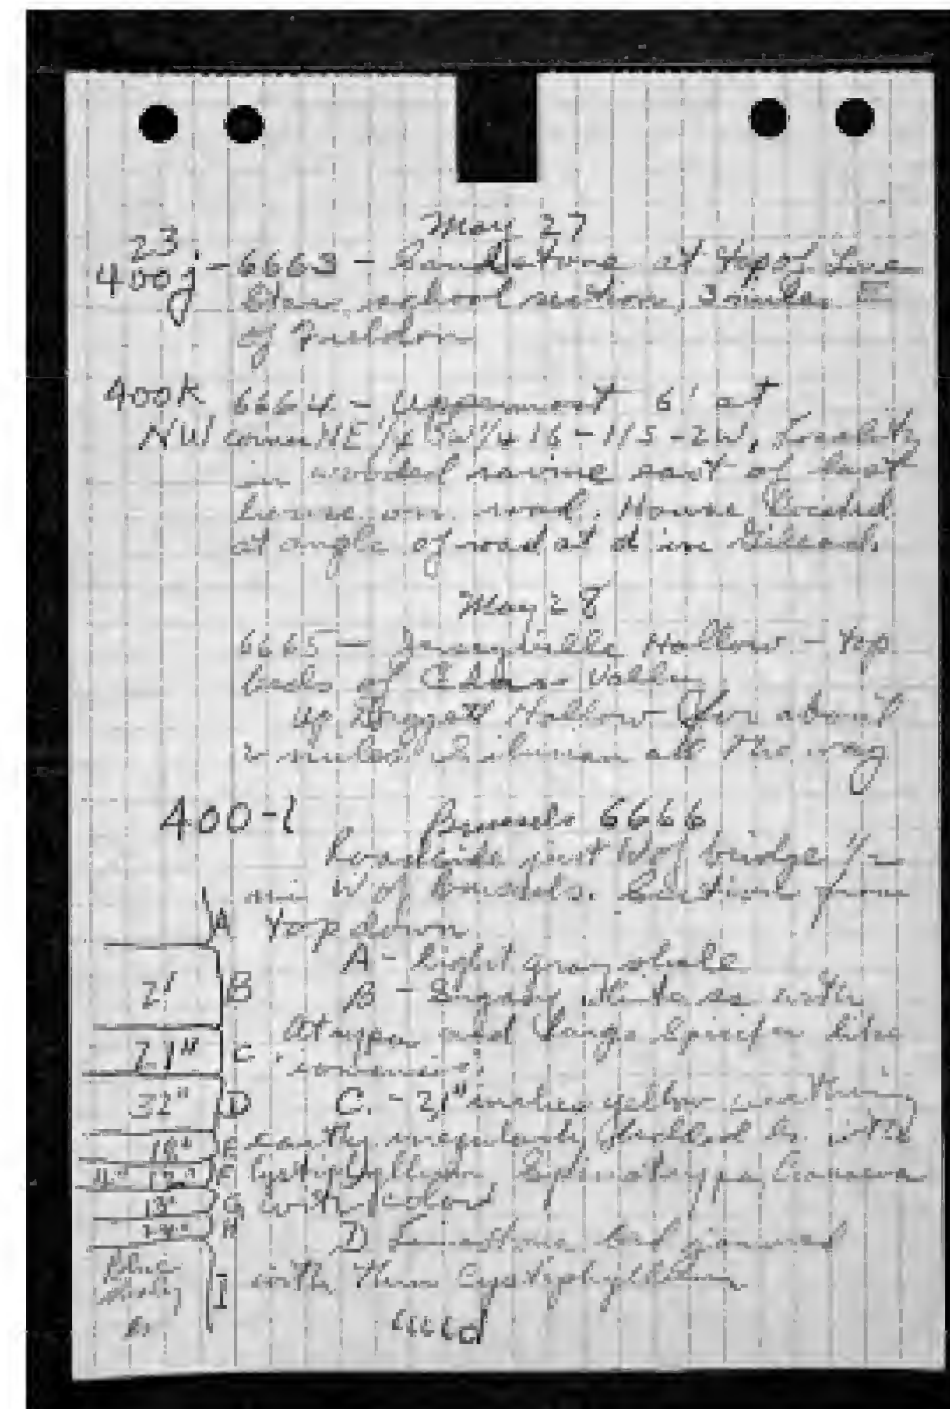 May 27
23
400j - 6663 - Sandstone at top of
school section, 3 miles
of Fieldon
400K 6664 - Uppermost 6' at
NW corner NE 1/4 SW 1/4 16-11S-2W, Locality
in wooded ravine east of last
house on road. House located
at angle of road at d in Gilead.
May 28
6665 - Jerseyville Hollow - Top
beds of Cedar Valley
Up Doggett Hollow for about
2 miles. Silurian all the way
400-l Brussels 6666
Roadside just W of bridge 1/2
mi W of Brussels. Section from
A top down
A - Light gray shale
2' B B - Sugary white ss with
Atrypa and large Spirifer like
21" C
32" D C. - 21" inches yellow
18" E earthy irregularly bedded ls. with
4" 12" F Cystiphyllum
13" G with color
24" H D Limestone bed
Blue I with thin Cystiphyllum
shaly
ls